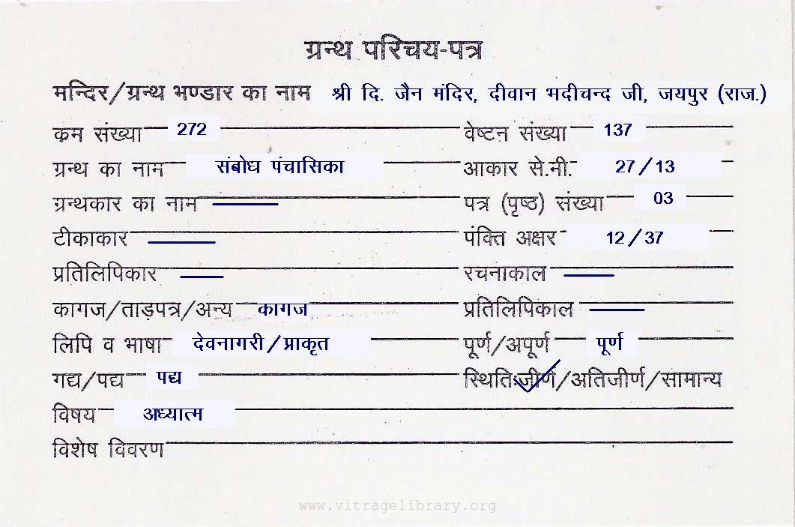 ग्रन्थ परिचय-पत्र
मन्दिर/ग्रन्थ भण्डार का नाम श्री दि. जैन मंदिर, दीवान भदीचन्द जी, जयपुर (राज.)
कम संख्या 272 वेष्टन संख्या 137
ग्रन्थ का नाम संबोध पंचासिका आकार से.मी. 27/13
ग्रन्थकार का नाम — पत्र (पृष्ठ) संख्या 03
टीकाकार — पंक्ति अक्षर 12/37
प्रतिलिपिकार — रचनाकाल —
कागज/ताड़पत्र/अन्य कागज प्रतिलिपिकाल —
लिपि व भाषा देवनागरी/प्राकृत पूर्ण/अपूर्ण पूर्ण
गद्य/पद्य पद्य स्थितिःजीर्ण/अतिजीर्ण/सामान्य
विषय अध्यात्म
विशेष विवरण
www.vitragelibrary.org